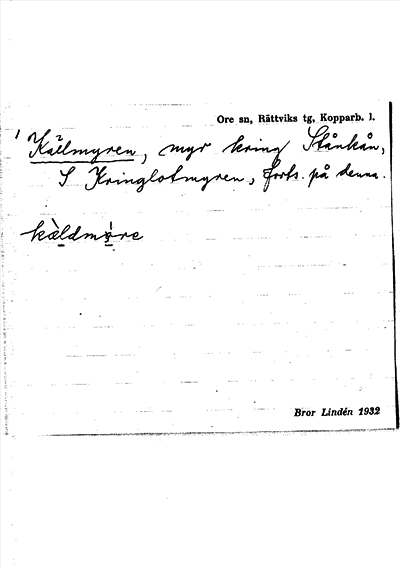 Ore sn, Rättviks tg, Kopparb. l.
1 Källmyren, myr kring Stånkån,
S Kringlotmyren, forts. på denna.
kàldmỳre
Bror Lindén 1932